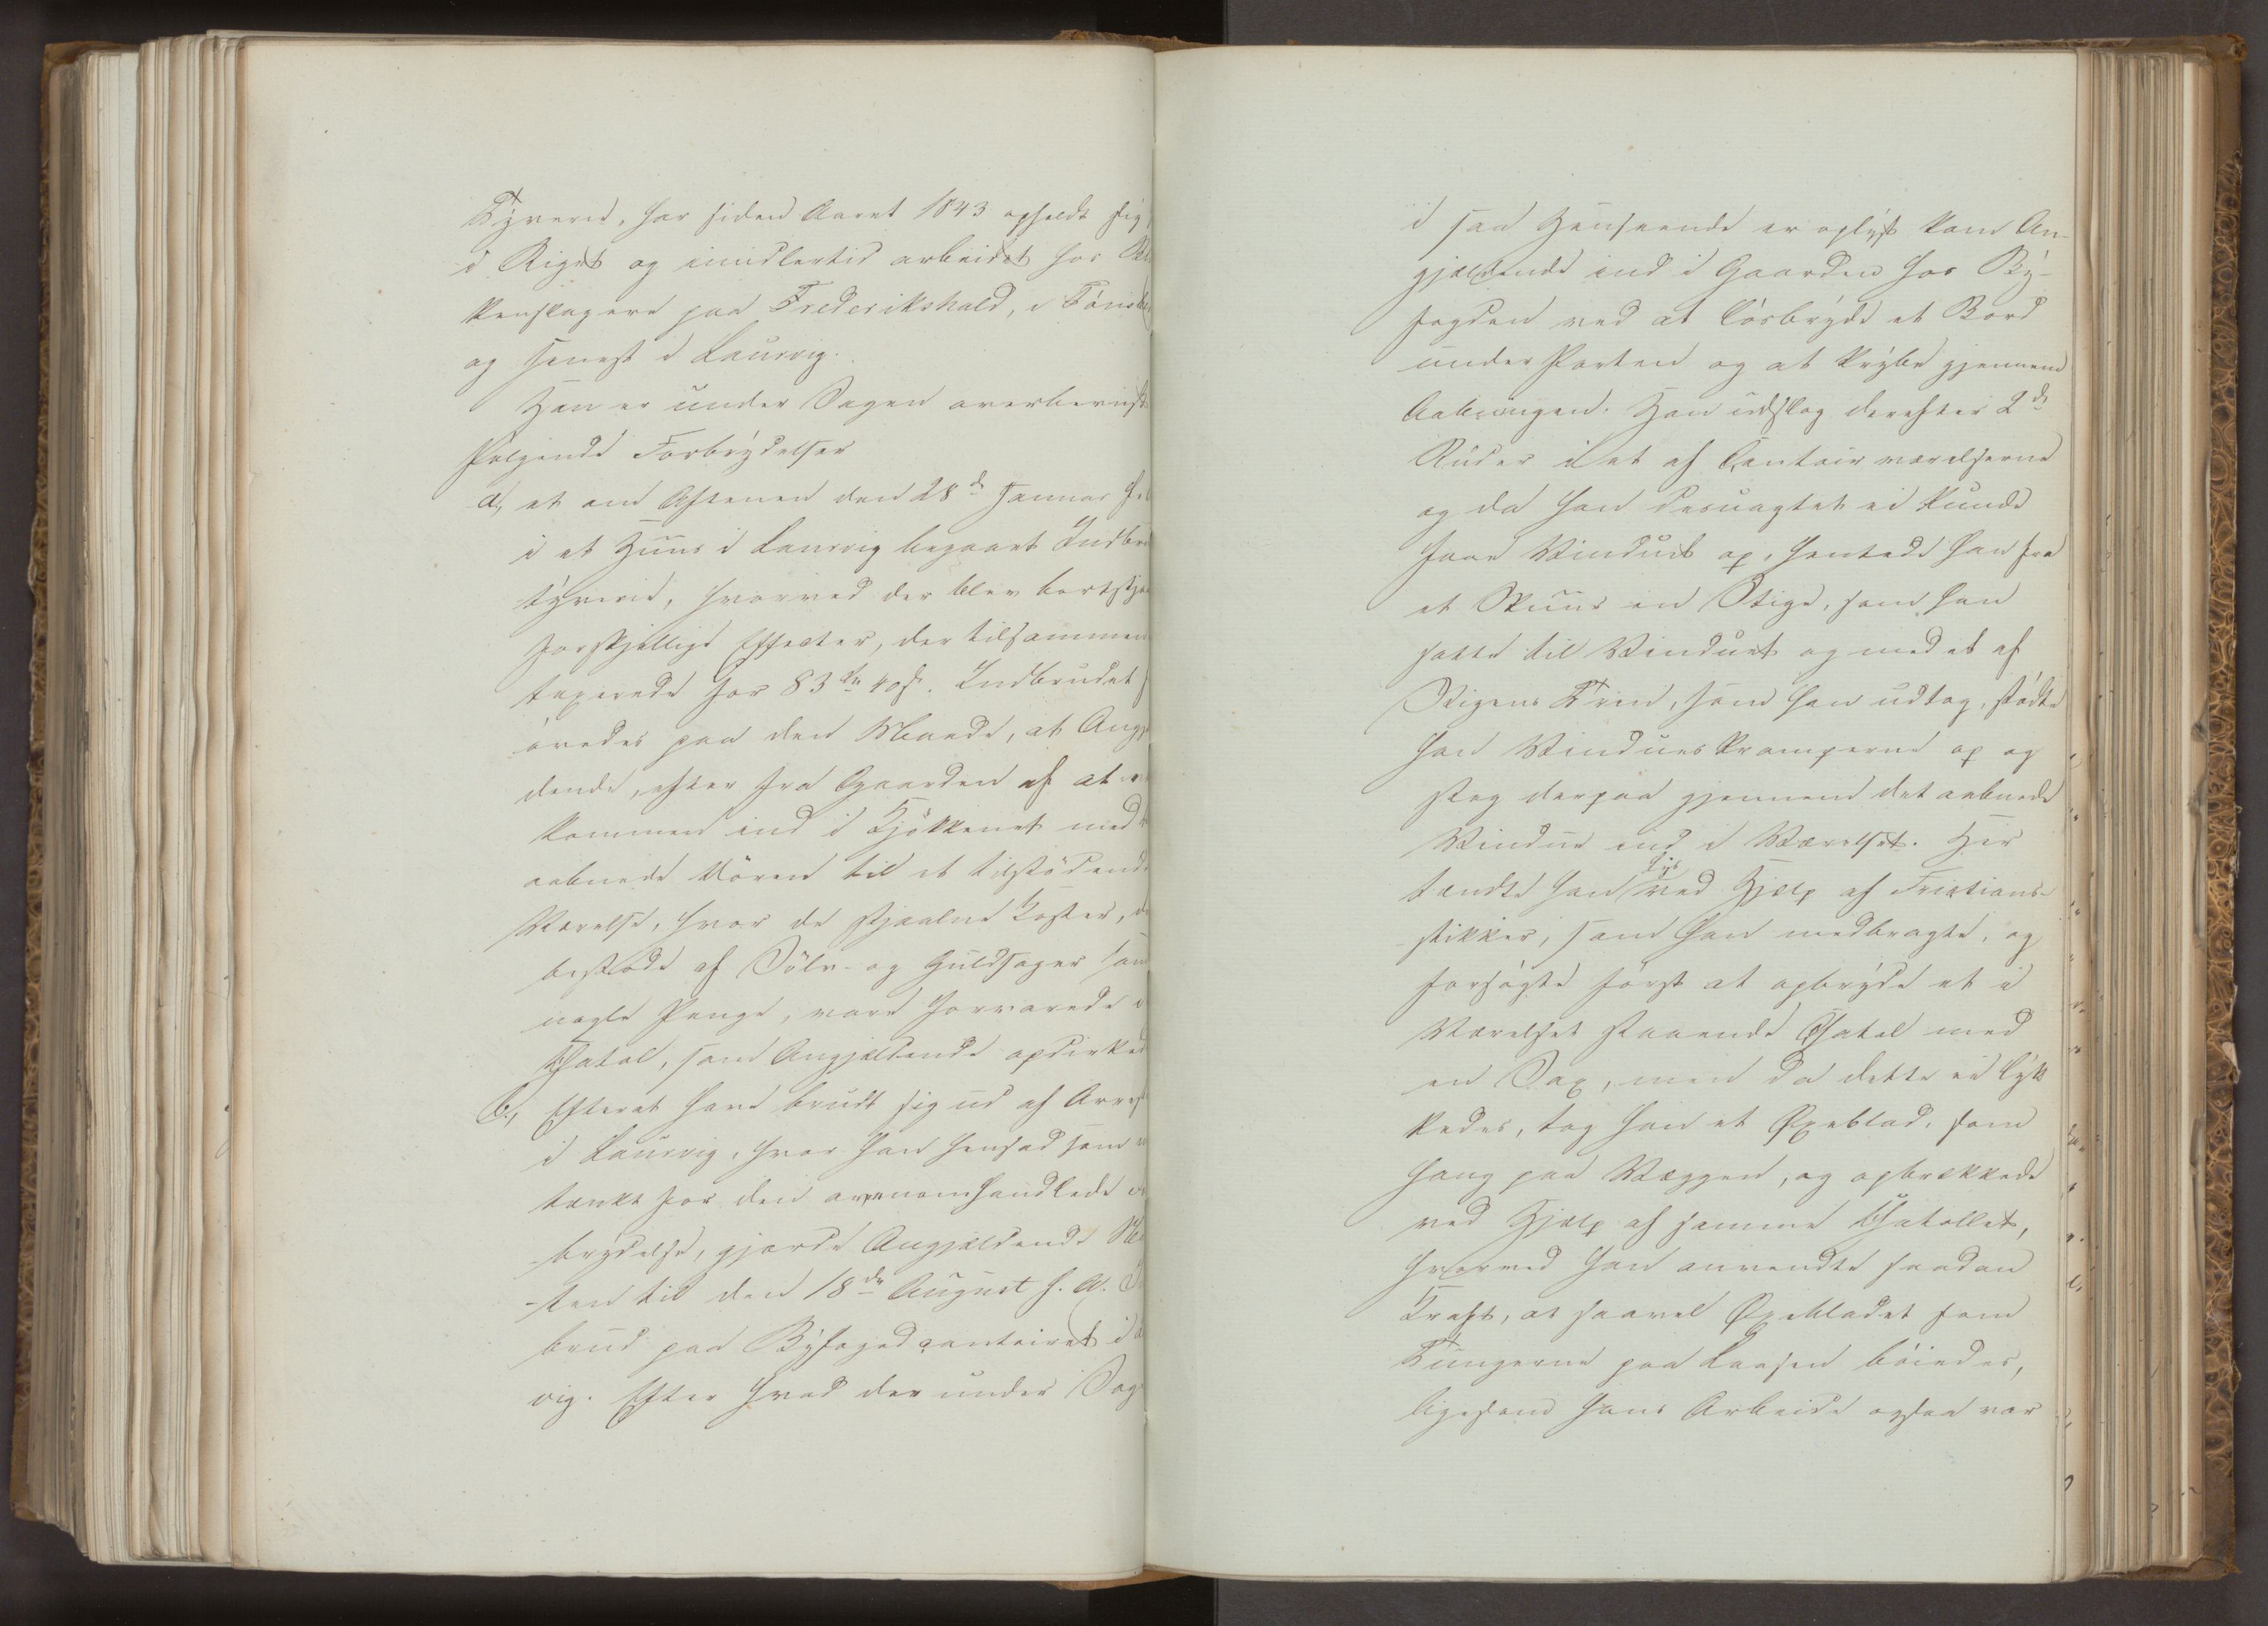 Tyverie, har siden Aaret 1843 opholdt sig
i Riget og imidlertid arbeidet hos
kenslagere paa Frederikshald, i Tönsb
og senest i Laurvig.
Han er under Sagen overbeviist
følgende Forbrydelser
a, et om Aftenen den 28d Januar f. A
i et Huus i Laurvig begaaet Indbru
tyverie, hvorved der blev bortstjaa
forskjellige Effecter, der tilsammen
taxerede for 83 Sp 40 s. Indbrudet
övedes paa den Maade, at Angj
dende, efter fra Gaarden af at
kommen ind i Kjökkenet med
aabnede Dören til et tilstödende
Værelse, hvor de stjaalne Koster, de
bestode af Sölv- og Guldsager samt
nogle Penge, vare forvarede i
Chatol, som Angjeldende opdirked
b, Efterat have brudt sig ud af Arrest
i Laurvig, hvor han hensad som
tænkt for den ovenomhandlede
brydelse, gjorde Angjeldende
ten til den 18de August f. A.
brud paa Byfogedcontoiret i
vig. Efter hvad der under Sag
i saa Henseende er oplyst kom An-
gjeldende ind i Gaarden hos By-
fogden ved at lösbryde et Bord
under Porten og at krybe gjennem
Aabningen. Han udslog derefter 2de
Ruder i et af Contoirværelserne
og da han desuagtet ei kunde
faae Vinduet op, hentede han fra
et Skuur en Stige, som han
satte til Vinduet og med et af
Stigens Trin, som han udtog, stödte
han Vindueskramperne op og
steg derpaa gjennem det aabnede
Vindue ind i Værelset. Her
tændte han Lys ved Hjelp af Frictions-
stikker, som han medbragte, og
forsögte först at opbryde et i
Værelset staaende Chatol med
en Sax, men da dette ei lyk
kedes, tog han et Øxeblad, som
hang paa Væggen, og opbrækkede
ved Hjelp af samme Chatollet,
hvorved han anvendte saadan
Kraft, at saavel Øxebladet som
Tungerne paa Laasen böiedes,
ligesom hans Arbeide ogsaa var